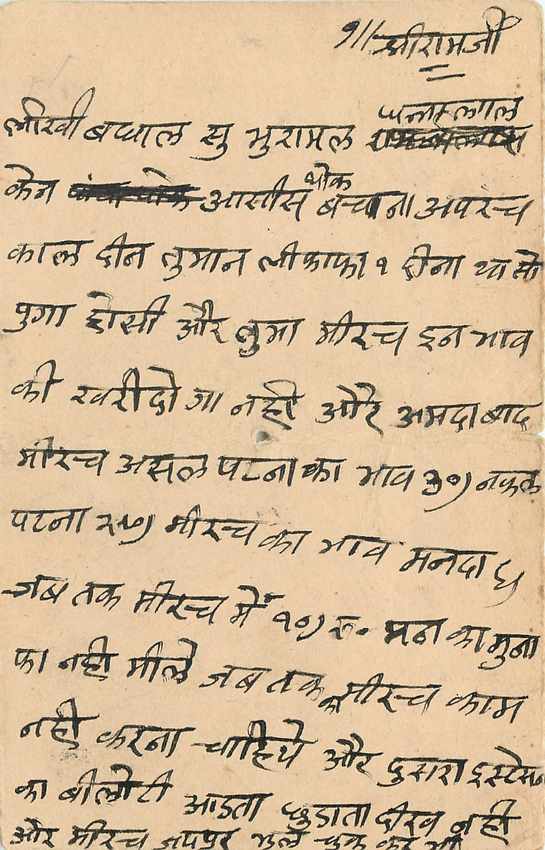 १॥ श्रीरामजी
लीखी बघाल सु भुरामल पन्नालाल
केन आसीस थोक बंचाना अपरंच
काल दीन तुमान लीफाफा १ दीना था सो
पुगा होसी और तुमा मीरच इन भाव
की खरीदो गा नही और अमदाबाद
मीरच असल पटना का भाव ३०) नकल
पटना २५) मीरच का भाव मनदा
जब तक मीरच में १०) रु० मन का मुना
फा नही मीले जब तक मीरच काम
नही करना चाहिये और दुसरा इस्टेसन
का बीलोटी आडता छुडाता दीख नही
और मीरच जयपुर भुल चुक कर भी